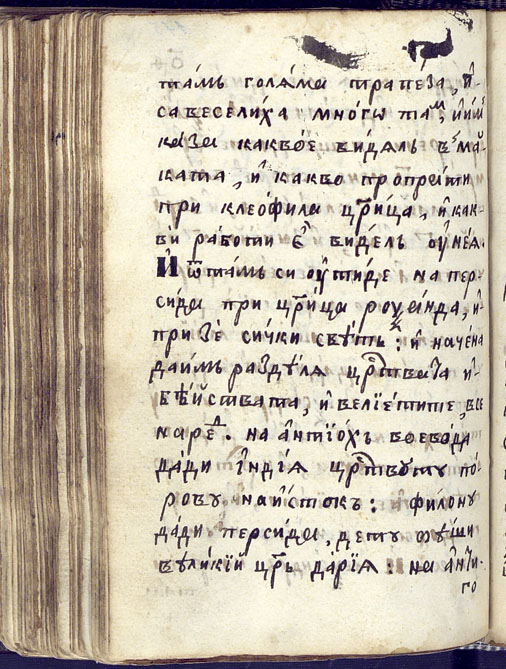 та́мъ голѧ́ма трапе́за, и҆
савесели́ха мно́гѡ таⷨ, и҆и҆мⸯ
ка́за какво̀е ви́дѧлъ вⸯма
ката, и҆ какво пропра́ти
при клеѡфила цр҃и́ца, и҆ как-
ви ра́боти є҆ ви́делъ ѹ҆неѧ.
И҆ ѿта́мъ си ѹ҆ти́де на пер-
си́да при цр҃и́ца роѯа́нда, и҆
призѐ си́чки свѣ́тъ: и҆ наче́на
даи҆мъ раздѣлѧ црⷭ҇твата и҆
бѣ́йствата, и҆ велїе́тите, все
нареⷣ. на а҆нтїо́хъ воево́да
да́ди і҆ндїѧ црⷭ҇твоту по́-
рову наи҆́стокъ: филону
да́ди персида, дету бѣ́ши
вѣли́кїи цр҃ь да́рїѧ: на а҆нти-
го